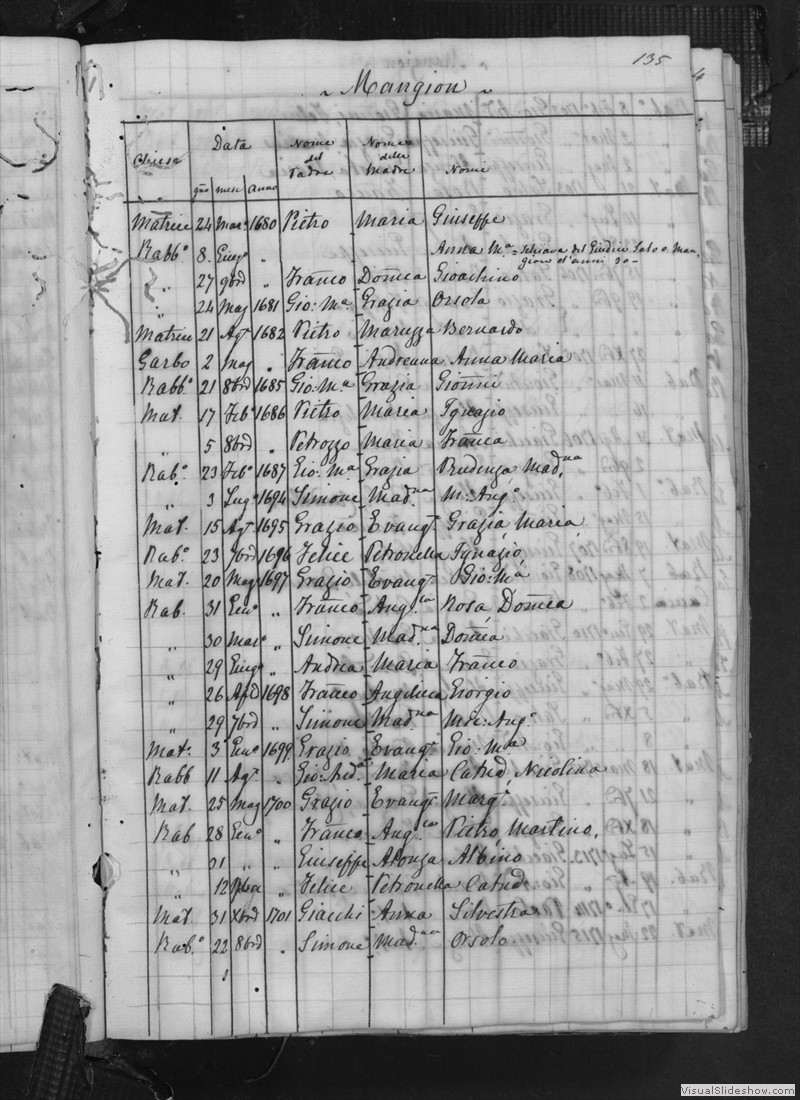 135
Mangion
Chiesa Data Nome del Padre Nome della Madre Nomi
gno mese anno
Matrice 24 Mar. 1680 Pietro Maria Giuseppe
Rabb.o 8. Giug.o " Anna M.a = Schiava del Giudice Salvo Man-
gion d'anni 30 -
" 27 9bre " Franco Domca Gioachino
" 24 Mag 1681 Gio: M.a Grazia Orsola
Matrice 21 Agt 1682 Pietro Maruzza Bernardo
Garbo 2 Mag " Franco Andreana Anna Maria
Rabb.o 21 8bre 1685 Gio: M.a Grazia Gionni
Mat. 17 Feb.o 1686 Pietro Maria Ignazio
" 5 8bre " Petrozzo Maria Franca
Rab.o 23 Feb.o 1687 Gio: M.a Grazia Prudenza Mad.na
" 3 Lug.o 1694 Simone Mad.na M: Ang.a
Mat. 15 Agt 1695 Grazio Evangt Grazia, Maria
Rab.o 23 7bre 1696 Felice Petronella Ignazio
Mat. 20 Mag 1697 Grazio Evangt Gio: Ma
Rab. 31 Gen.o " Franco Ang.ca Rosa, Domca
" 30 Mar.o " Simone Mad.na Domca
" 29 Giug.o " Andrea Maria Franco
" 26 Aple 1698 Franco Angelica Giorgio
" 29 7bre " Simone Mad.na Mic: Ang.o
Mat. 3 Gen.o 1699 Grazio Evangt Gio: Ma
Rabb 11 Agt " Gio: And.a Maria Catna, Nicolina
Mat. 25 Mag 1700 Grazio Evangt Margt
Rab 28 Gen.o " Franco Ang.ca Pietro, Martino,
" 21 " " Giuseppe Alonza Albino
" 12 " Felice Petronella Catna
Mat 31 Xbre 1701 Giacchi Anna Silvestra
Rab.o 22 8bre " Simone Mad.na Orsola
VisualSlideshow.com